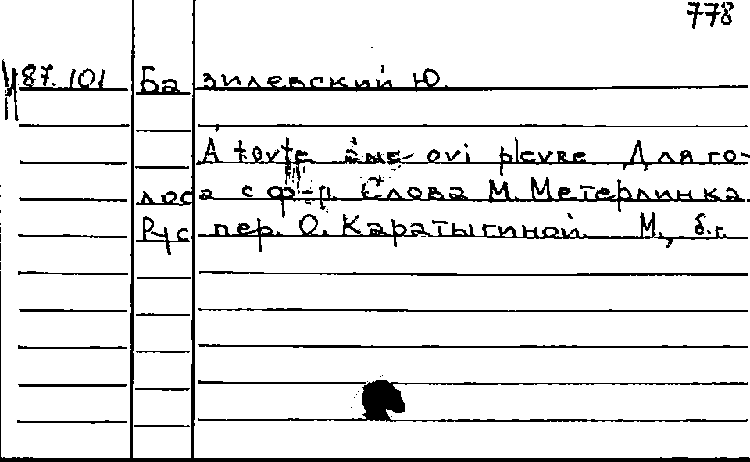 778
Ч87.101 Базилевский Ю.
À toute âme qui pleure. Для го-
лоса с ф-п. Слова М. Метерлинка.
Рус. пер. О. Каратыгиной. М., б.г.